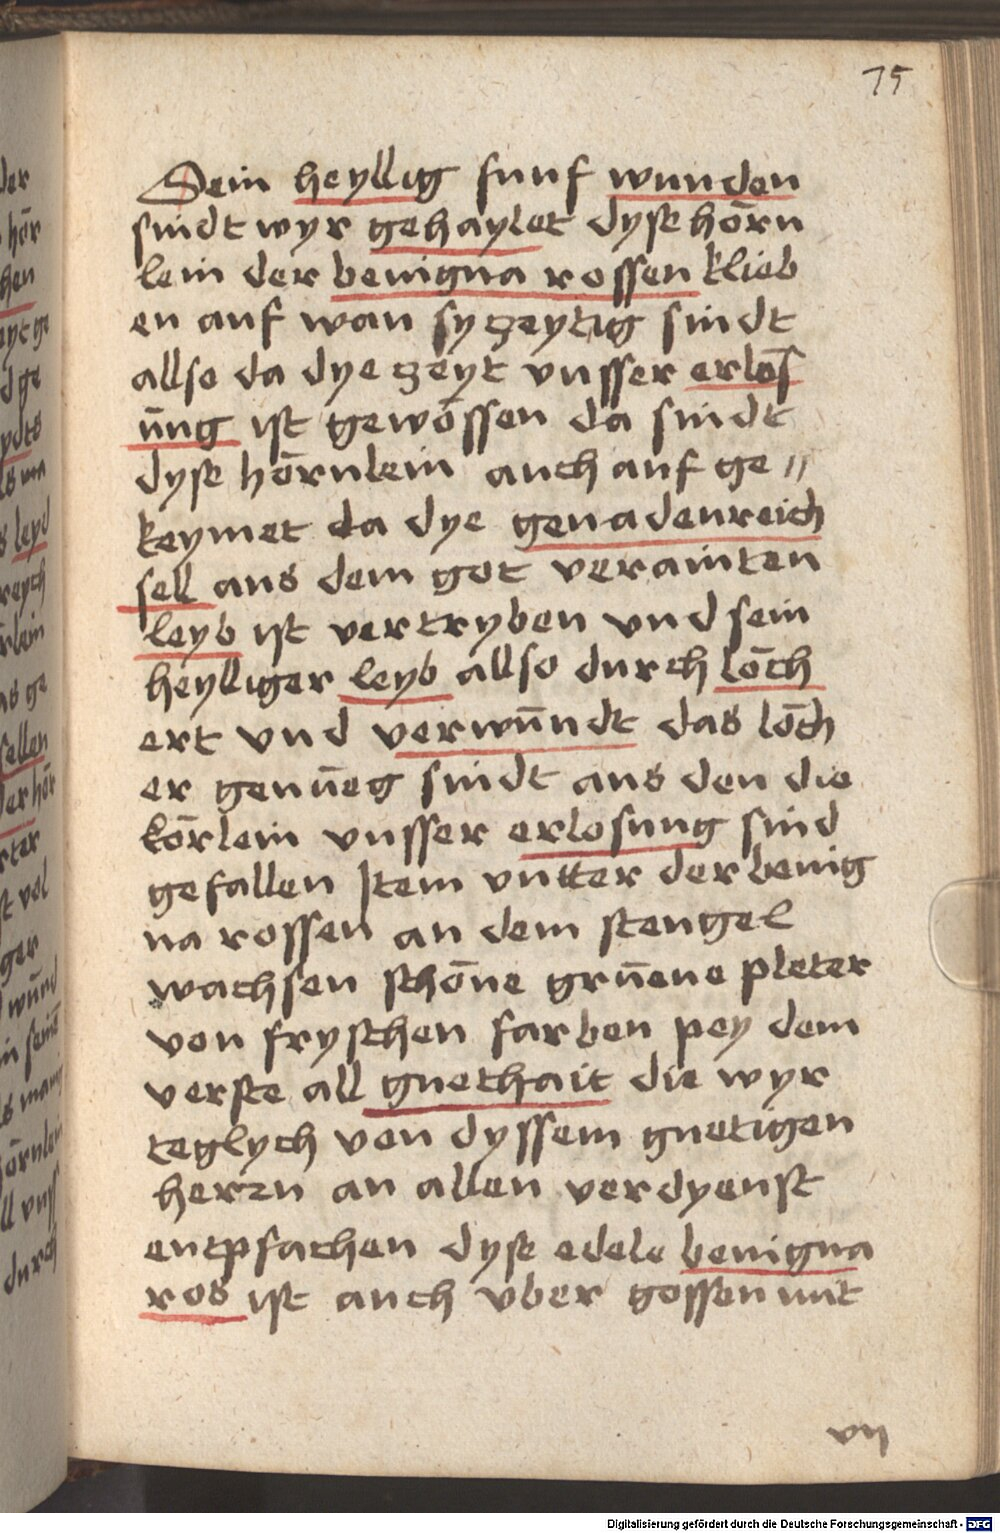 75
Sein heyllig funf wunden
sindt wyr gehaylet dyse hörn
lein der benigna rossen klieb
en auf wan sy zeytig sindt
allso da dye zeyt vnsser erlos
üng ist gewössen da sindt
dyse hörnlein auch auf ge//
keymet da dye genadenreich
sell aus dem got verainten
leyb ist vertryben vnd sein
heylliger leyb allso durch löch
ert vnd verwündt das löch
er genüeg sindt aus den die
körlein vnsser erlosung sind
gefallen Item vntter der benig
na rossen an dem stengel
wachsen schöne grüene pleter
von fryschen farben pey dem
verste all guethait die wyr
teglych von dyssem guetigen
herrn an allen verdyenst
entpfachen dyse edele benigna
ros ist auch vber gossen mit
vij
der
hör
hen
ayt ge
d ge
ydts
ls ma
s leyd
reych
rlein
as ge
sellen
der hör
rter
st vol
ger
wund
in seinē
ls manig
hörnlein
ll vnss
durch
Digitalisierung gefördert durch die Deutsche Forschungsgemeinschaft - DFG